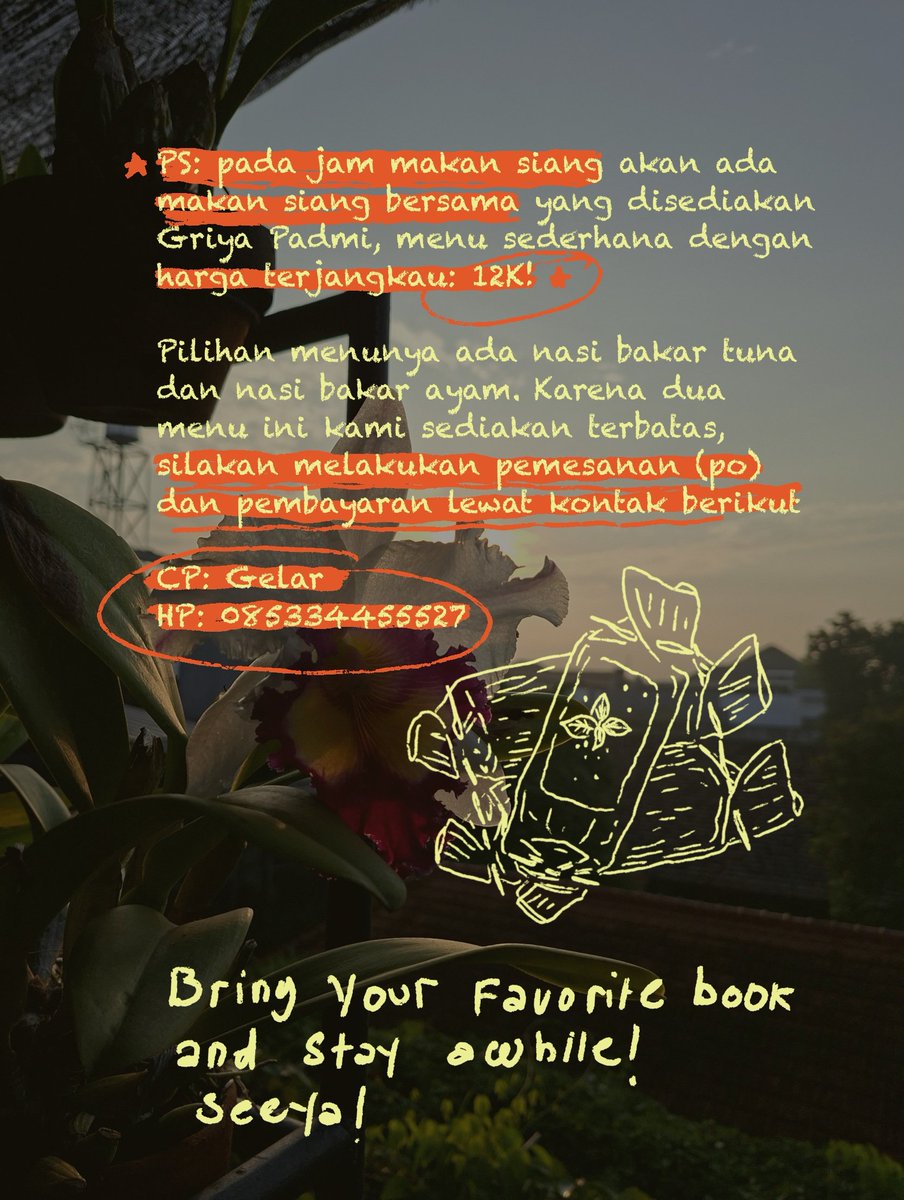 PS: pada jam makan siang akan ada
makan siang bersama yang disediakan
Griya Padmi, menu sederhana dengan
harga terjangkau: 12K!
Pilihan menunya ada nasi bakar tuna
dan nasi bakar ayam. Karena dua
menu ini kami sediakan terbatas,
silakan melakukan pemesanan (po)
dan pembayaran lewat kontak berikut
CP: Gelar
HP: 085334455527
Bring your Favorite book
and stay awhile!
seeya!